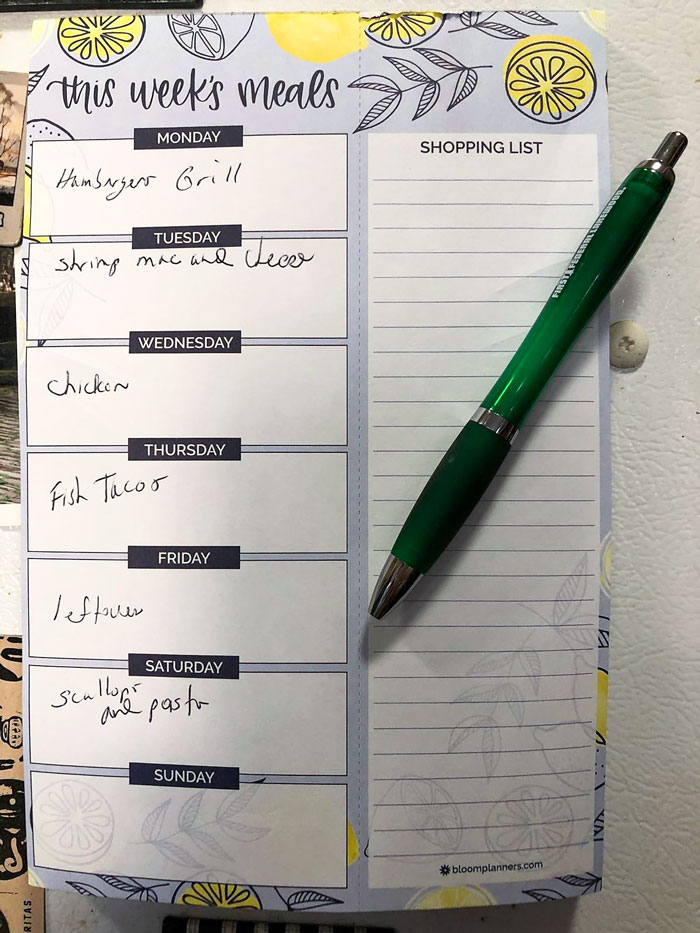 this week's meals
MONDAY
Hamburgers Grill
TUESDAY
shrimp mac and cheese
WEDNESDAY
chicken
THURSDAY
Fish Tacos
FRIDAY
leftover
SATURDAY
scallops
and pasta
SUNDAY
SHOPPING LIST
bloomplanners.com
FIRST FEDERAL
RITAS